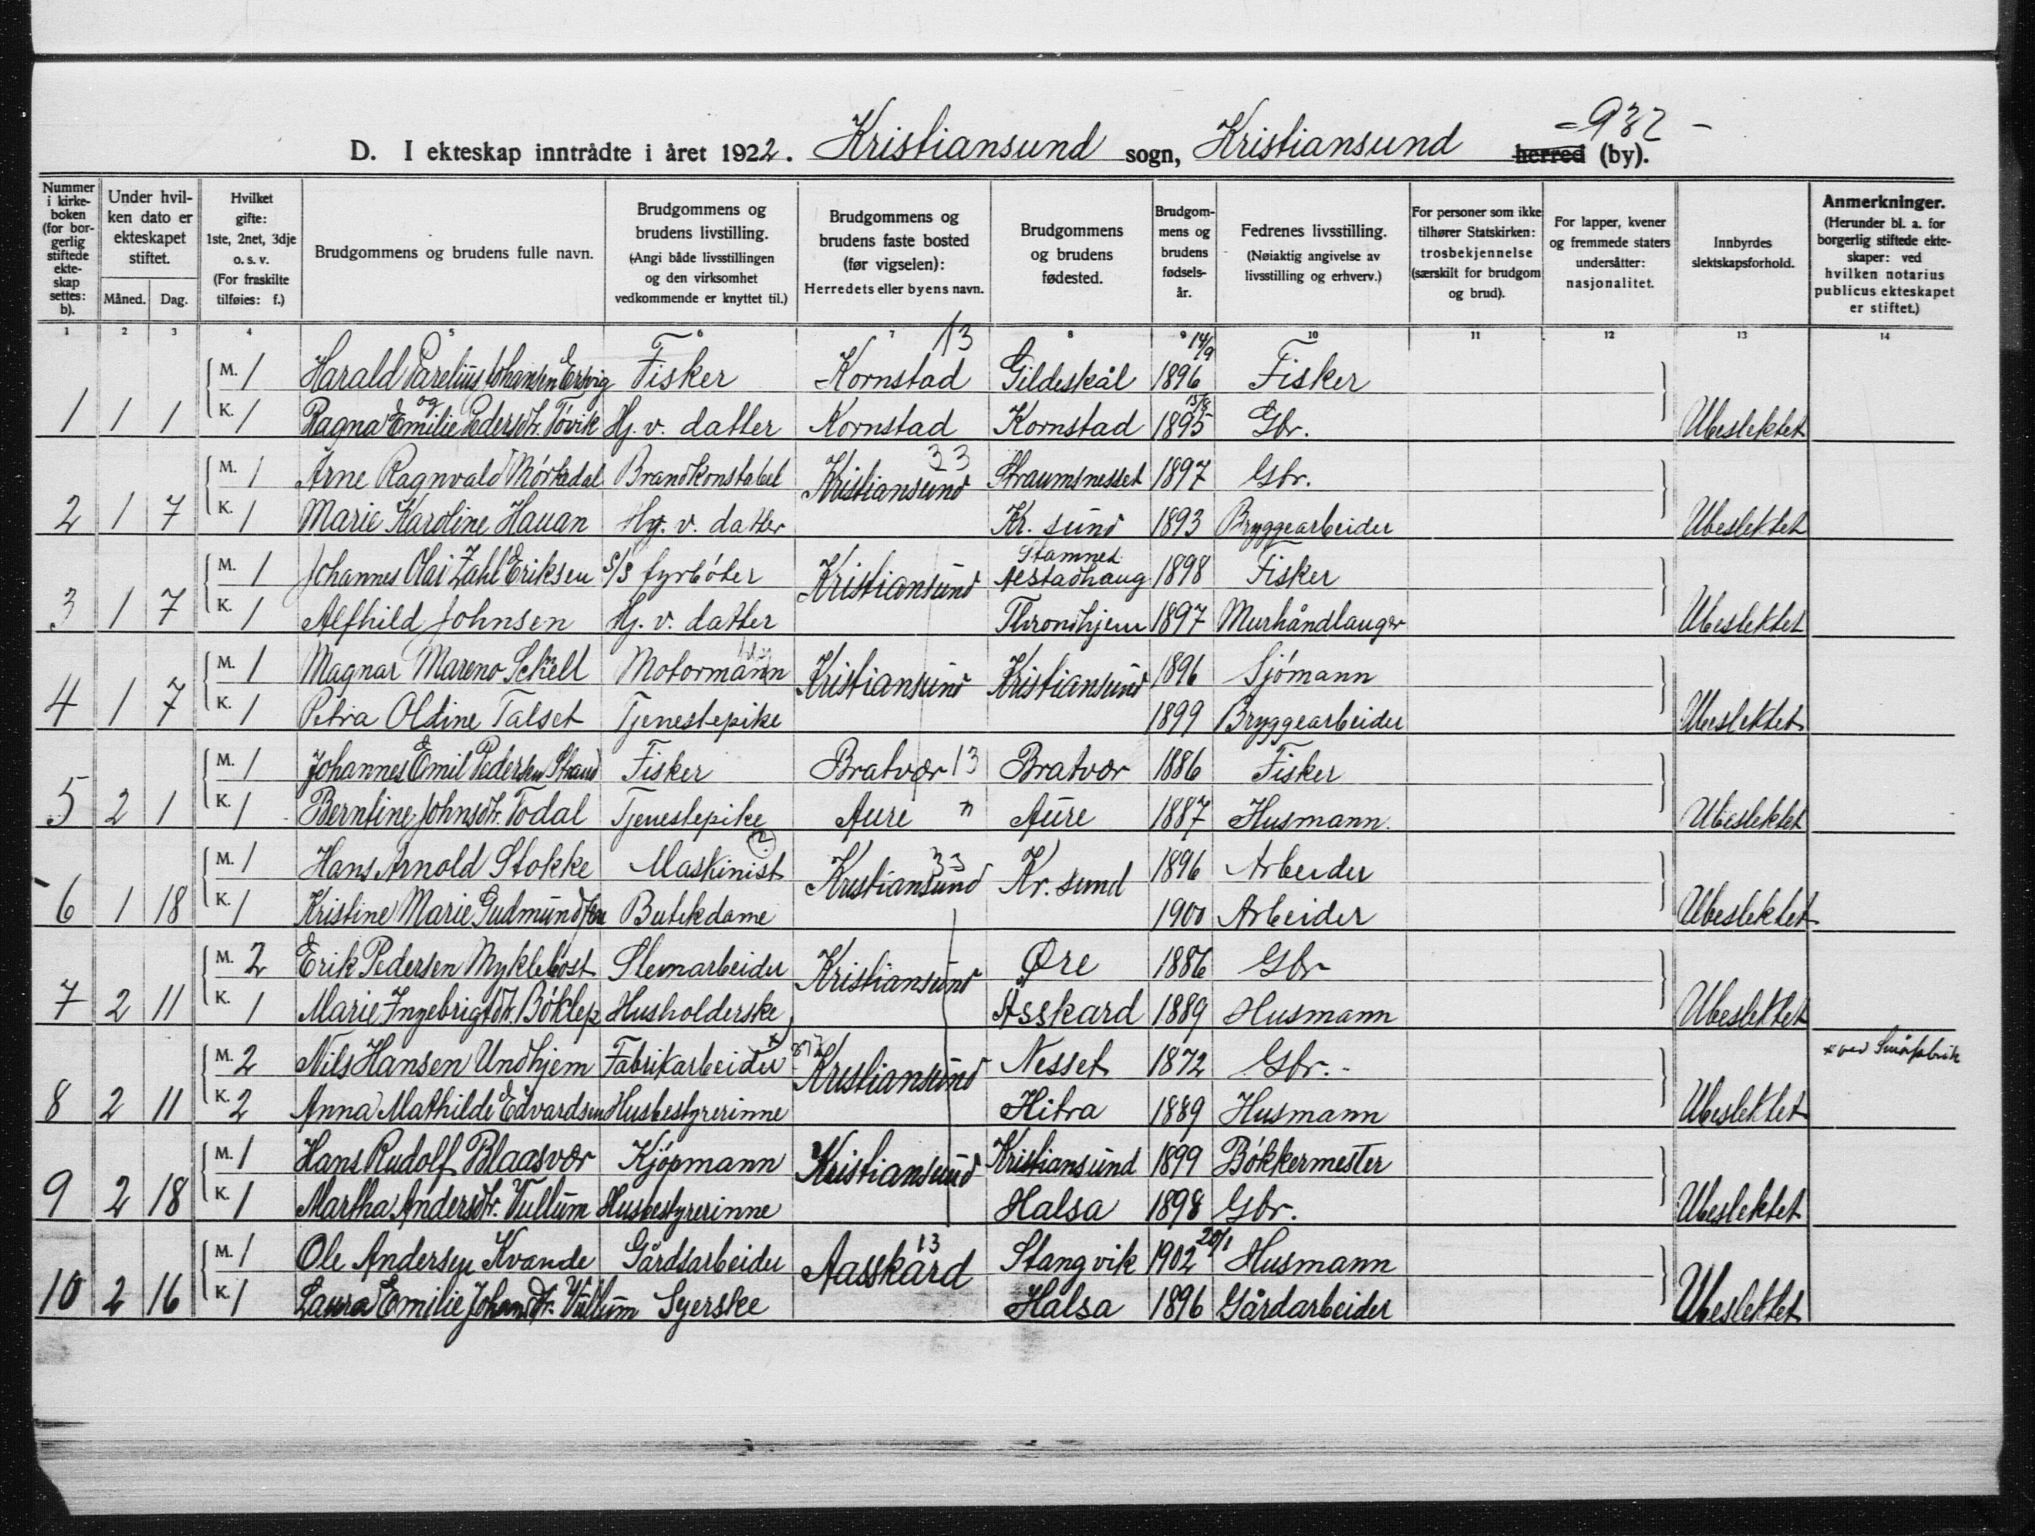 -932-
D. I ekteskap inntrådte i året 1922. Kristiansund sogn, Kristiansund herred (by).
Nummer i kirke-boken (for bor-gerlig stiftede ekte-skap settes: b). | Under hvil-ken dato er ekteskapet stiftet. Måned. Dag. | Hvilket gifte: 1ste, 2net, 3dje o. s. v. (For fraskilte tilføies: f.) | Brudgommens og brudens fulle navn. | Brudgommens og brudens livstilling. (Angi både livsstillingen og den virksomhet vedkommende er knyttet til.) | Brudgommens og brudens faste bosted (før vigselen): Herredets eller byens navn. | Brudgommens og brudens fødested. | Brudgom-mens og brudens fødsels-år. | Fedrenes livsstilling. (Nøiaktig angivelse av livsstilling og erhverv.) | For personer som ikke tilhører Statskirken: trosbekjennelse (særskilt for brudgom og brud). | For lapper, kvener og fremmede staters undersåtter: nasjonalitet. | Innbyrdes slektskapsforhold. | Anmerkninger. (Herunder bl. a. for borgerlig stiftede ekte-skaper: ved hvilken notarius publicus ekteskapet er stiftet.)
1 2 3 4 5 6 7 8 9 10 11 12 13 14
13 14/9
M. 1 Harald Parelius Johansen Ersvig Fisker Kornstad Gildeskål 1896 Fisker
og 15/8
1 1 1 K. 1 Ragna Emilie Pedersdtr. Tøvik Hj. v. datter Kornstad Kornstad 1895 Gbr. Ubeslektet
33
M. 1 Arne Ragnvald Mørkedal Brandkonstabel Kristiansund Straumsnesset 1897 Gbr.
2 1 7 K. 1 Marie Karoline Hauan Hj. v. datter Kr. sund 1893 Bryggearbeider Ubeslektet
Stamnet
M. 1 Johannes Olai Zahl Eriksen S/S fyrbøter Kristiansund Aestadhaug 1898 Fisker
3 1 7 K. 1 Alfhild Johnsen Hj. v. datter Throndhjem 1897 Murhåndlanger Ubeslektet
M. 1 Magnar Mareno Schell Motormann Kristiansund Kristiansund 1896 Sjømann
4 1 7 K. 1 Petra Oldine Talset Tjenestepike 1899 Bryggearbeider Ubeslektet
M. 1 Johannes Emil Pedersen Strand Fisker Bratvær 13 Bratvær 1886 Fisker
5 2 1 K. 1 Berntine Johnsdtr. Todal Tjenestepike Aure " Aure 1887 Husmann. Ubeslektet
(?) 33
M. 1 Hans Arnold Stokke Maskinist Kristiansund Kr. sund 1896 Arbeider
6 1 18 K. 1 Kristine Marie Gudmundsen Butikdame 1900 Arbeider Ubeslektet
M. 2 Erik Pedersen Myklebøst Stenarbeider Kristiansund Øre 1886 Gbr
7 2 11 K. 1 Marie Ingebrigtdtr. Bøklep Husholderske Åsskard 1889 Husmann Ubeslektet
M. 2 Nils Hansen Undhjem Fabrikarbeider x Kristiansund Nesset 1872 Gbr. x ved Smørfabrik
8 2 11 K. 2 Anna Mathilde Edvardsen Husbestyrerinne Hitra 1889 Husmann Ubeslektet
M. 1 Hans Rudolf Blaasvær Kjøpmann Kristiansund Kristiansund 1899 Bøkkermester
9 2 18 K. 1 Martha Andersdtr. Vullum Husbestyrerinne Halsa 1898 Gbr. Ubeslektet
13 20/1
M. 1 Ole Andersen Kvande Gårdsarbeider Aasskard Stangvik 1902 Husmann
10 2 16 K. 1 Laura Emilie Johansdtr. Vullum Syerske Halsa 1896 Gårdarbeider Ubeslektet